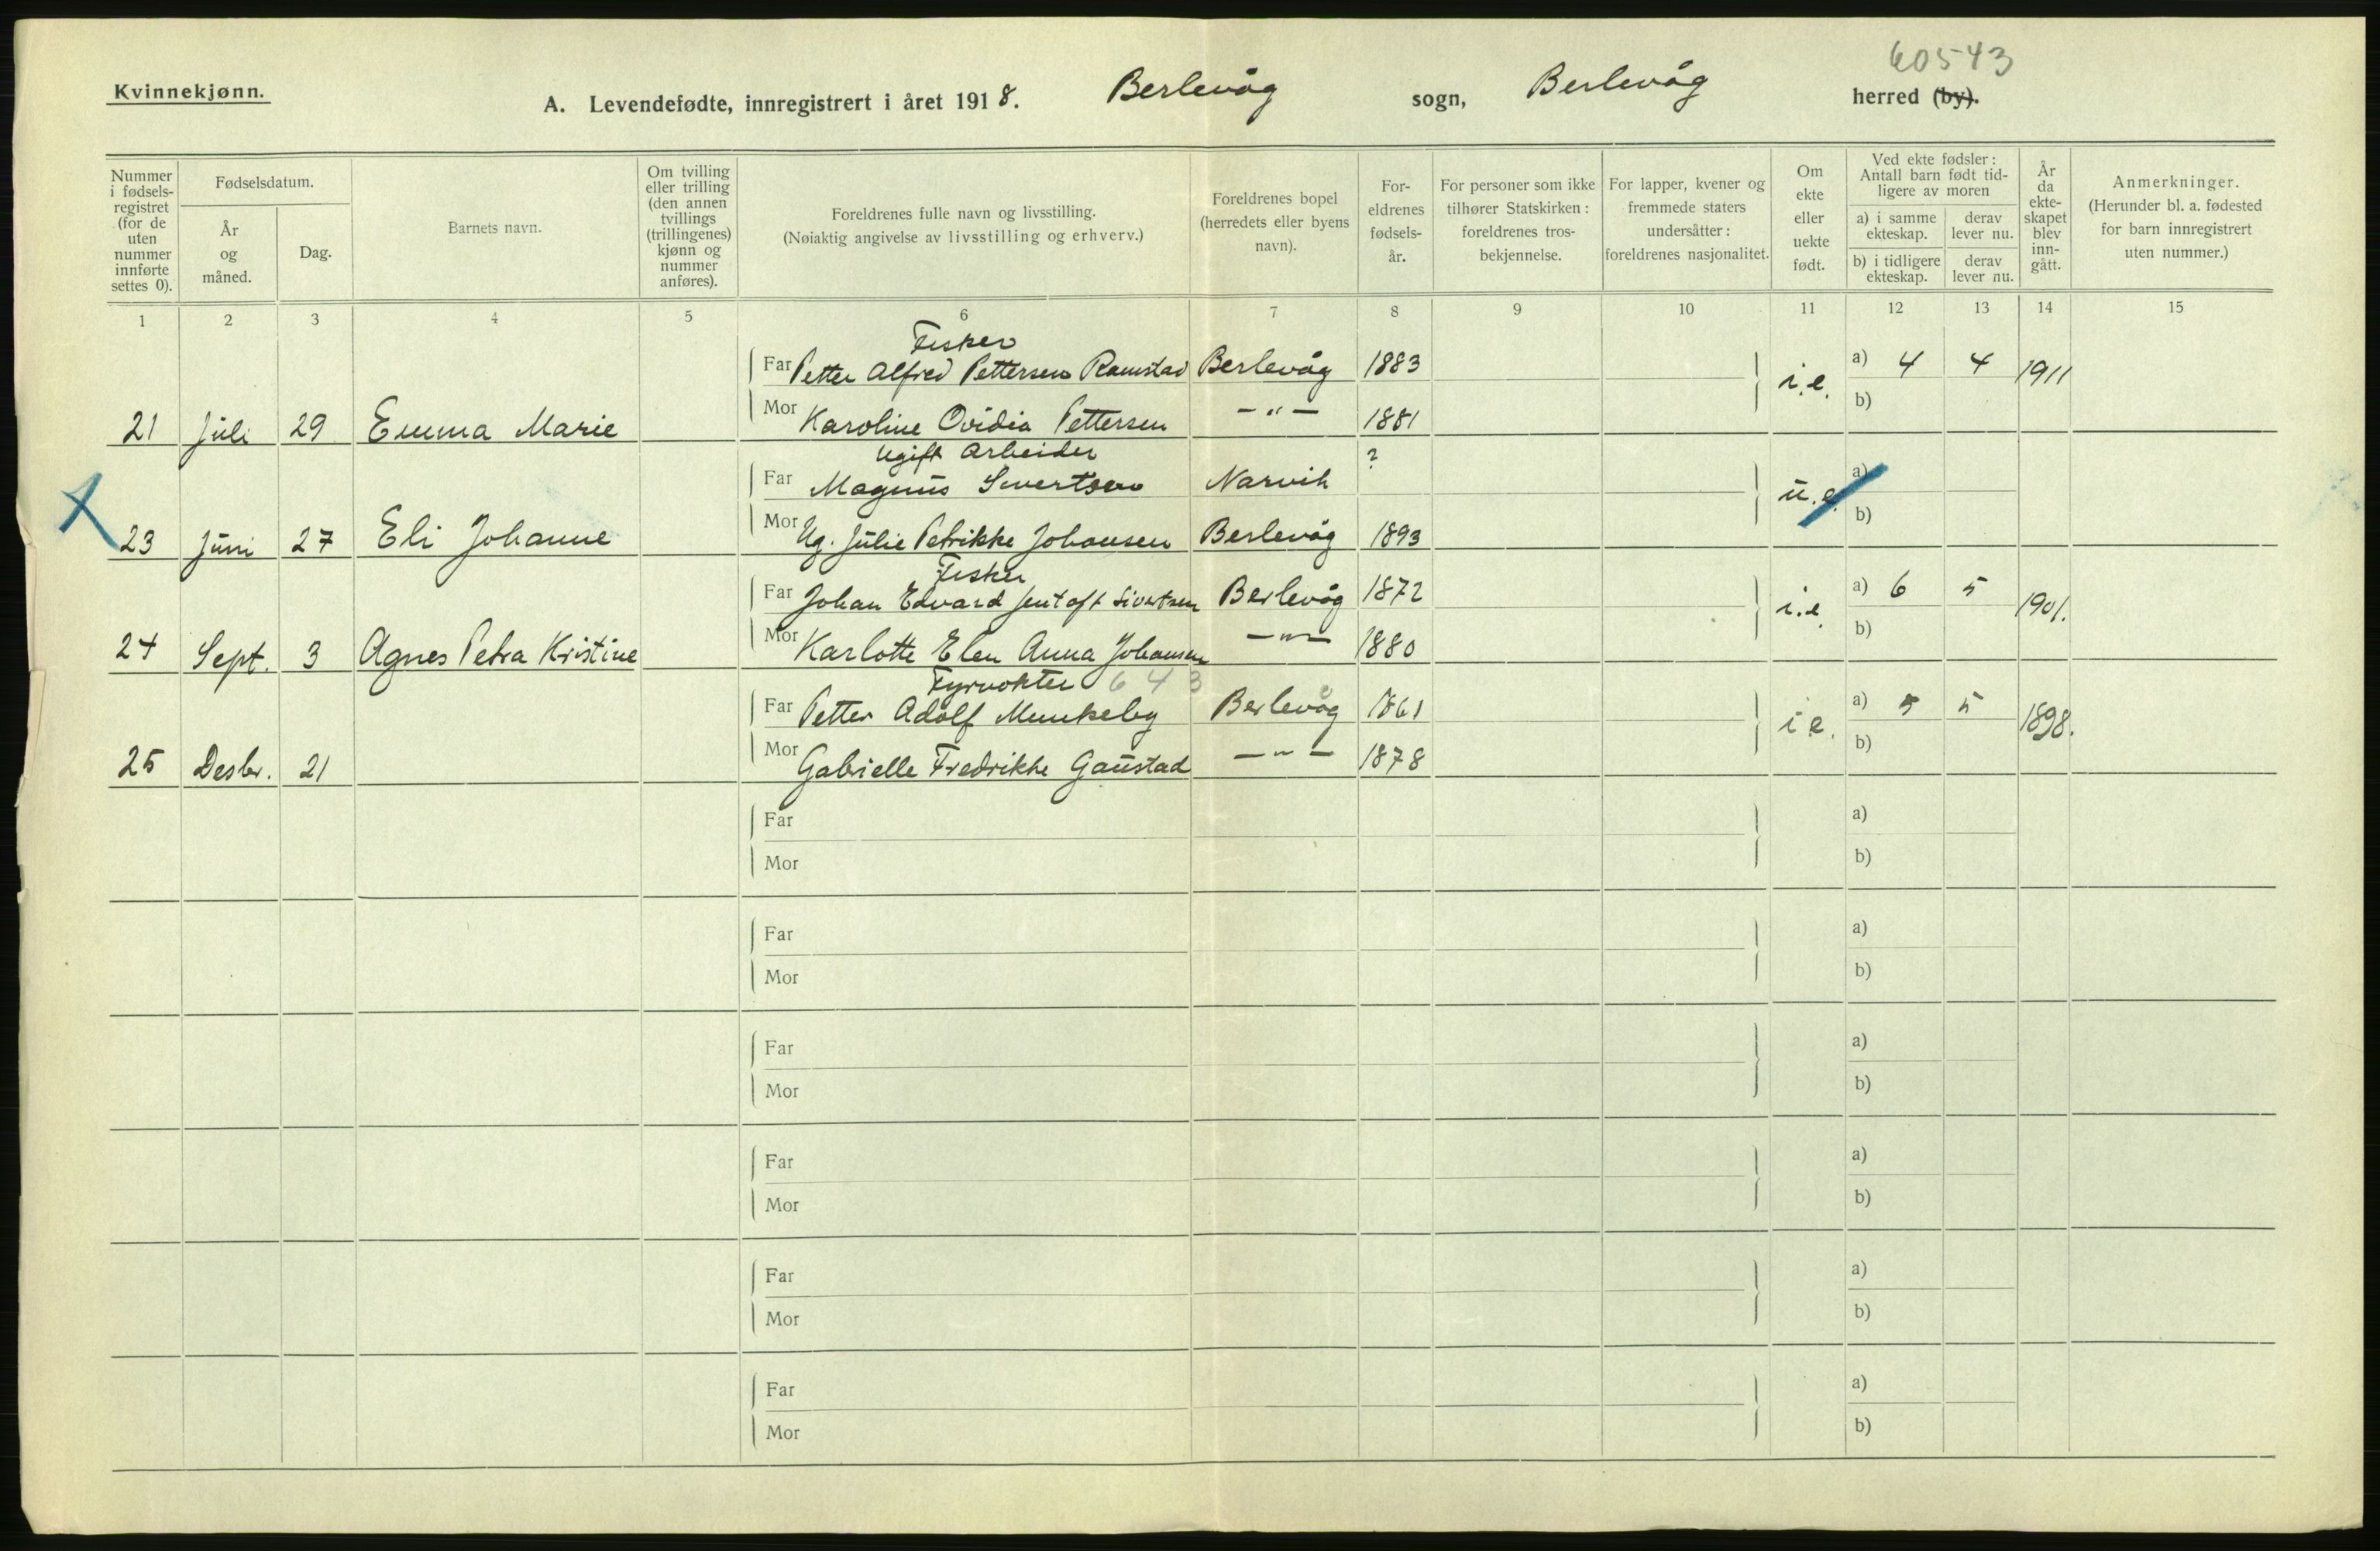 60543
Kvinnekjønn.
A. Levendefødte, innregistrert i året 1918. Berlevåg sogn, Berlevåg herred (by).
Nummer i fødsels-registret (for de uten nummer innførte settes 0).
Fødselsdatum.
År og måned.
Dag.
Barnets navn.
Om tvilling eller trilling (den annen tvillings (trillingenes) kjønn og nummer anføres).
Foreldrenes fulle navn og livsstilling.
(Nøiaktig angivelse av livsstilling og erhverv.)
Foreldrenes bopel (herredets eller byens navn).
For-eldrenes fødsels-år.
For personer som ikke tilhører Statskirken: foreldrenes tros-bekjennelse.
For lapper, kvener og fremmede staters undersåtter: foreldrenes nasjonalitet.
Om ekte eller uekte født.
Ved ekte fødsler: Antall barn født tid-ligere av moren
a) i samme ekteskap.
derav lever nu.
b) i tidligere ekteskap.
derav lever nu.
År da ekte-skapet blev inn-gått.
Anmerkninger.
(Herunder bl. a. fødested for barn innregistrert uten nummer.)
1 2 3 4 5 6 7 8 9 10 11 12 13 14 15
Fisker
Far Petter Alfred Pettersen Ramstad Berlevåg 1883 i.e. a) 4 4 1911
21 Juli 29 Emma Marie Mor Karoline Ovidia Pettersen —"— 1881 b)
Ugift Arbeider
Far Magnus Sivertsen Narvik ? u.e. a)
23 Juni 27 Eli Johanne Mor Ug. Julie Petrikke Johansen Berlevåg 1893 b)
Fisker
Far Johan Edvard Jentoft Sivertsen Berlevåg 1872 i.e. a) 6 5 1901.
24 Sept. 3 Agnes Petra Kristine Mor Karlotte Elen Anna Johansen —"— 1880 b)
Fyrvokter 643
Far Petter Adolf Munkeby Berlevåg 1861 i e. a) 5 5 1898.
25 Desbr. 21 Mor Gabrielle Fredrikke Gaustad —"— 1878 b)
Far a)
Mor b)
Far a)
Mor b)
Far a)
Mor b)
Far a)
Mor b)
Far a)
Mor b)
Far a)
Mor b)